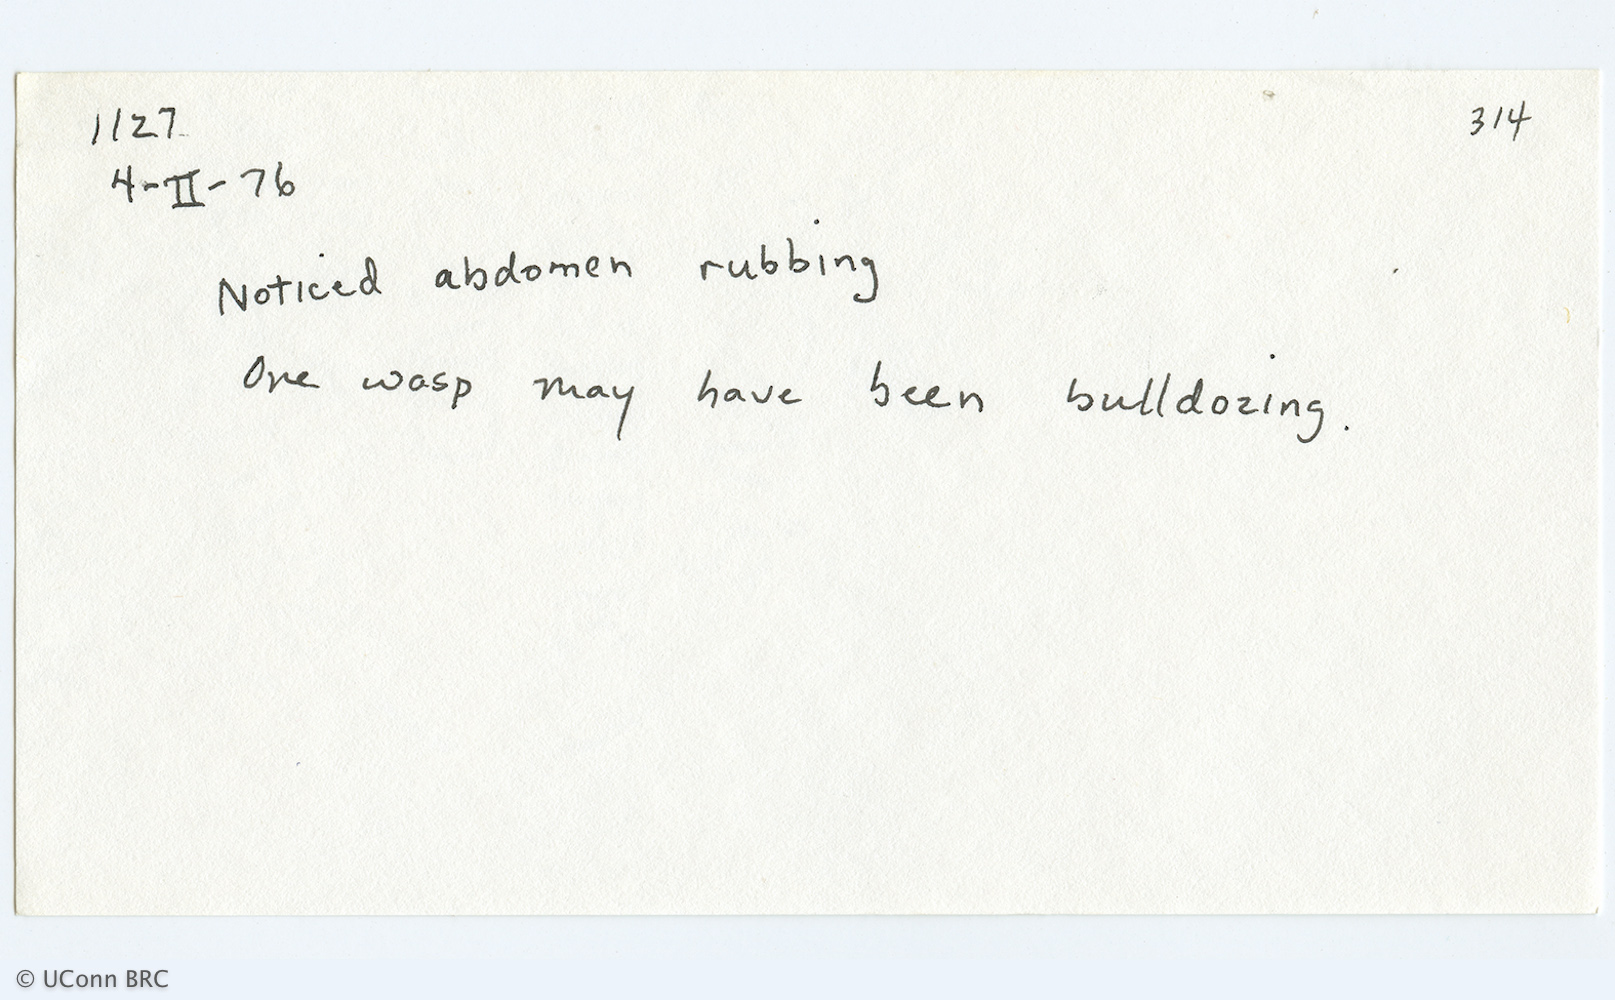 1127
314
4-II-76
Noticed abdomen rubbing
One wasp may have been bulldozing.
© UConn BRC